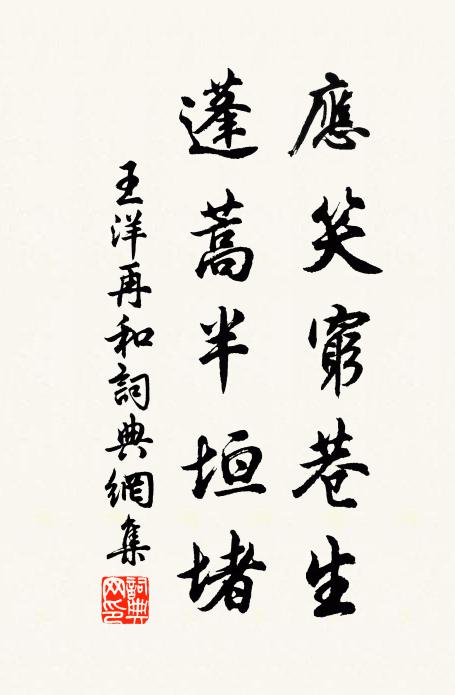 應笑窮巷生
蓬蒿半垣堵
王洋再和詞典網集
詞典網印